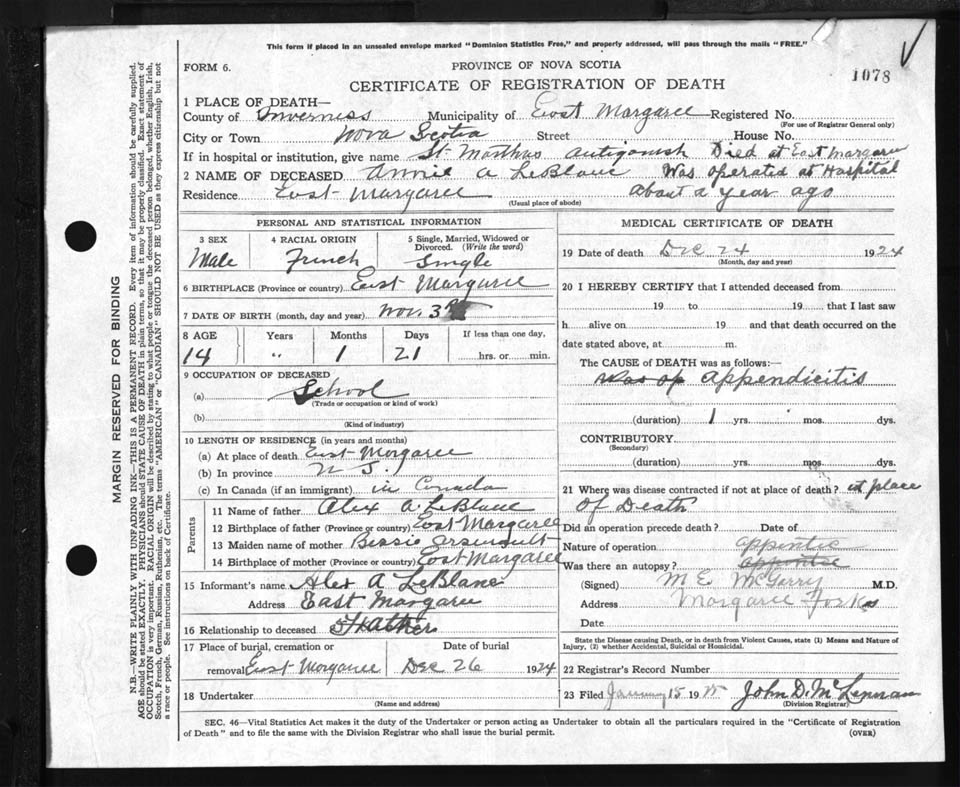 This form if placed in an unsealed envelope marked "Dominion Statistics Free," and properly addressed, will pass through the mails "FREE."
FORM 6.
PROVINCE OF NOVA SCOTIA
1078
CERTIFICATE OF REGISTRATION OF DEATH
1 PLACE OF DEATH—
County of Inverness Municipality of East Margaree Registered No.
(For use of Registrar General only)
City or Town Nova Scotia Street House No.
If in hospital or institution, give name St Marthas Antigonish Died at East Margaree
2 NAME OF DECEASED Annie A LeBlanc Was operated at Hospital
Residence East Margaree about a year ago
(Usual place of abode)
PERSONAL AND STATISTICAL INFORMATION
3 SEX 4 RACIAL ORIGIN 5 Single, Married, Widowed or Divorced. (Write the word)
Male French Single
6 BIRTHPLACE (Province or country) East Margaree
7 DATE OF BIRTH (month, day and year) Nov. 3
8 AGE Years Months Days If less than one day,
14 " 1 21 hrs. or min.
9 OCCUPATION OF DECEASED
(a) School
(Trade or occupation or kind of work)
(b)
(Kind of industry)
10 LENGTH OF RESIDENCE (in years and months)
(a) At place of death East Margaree
(b) In province N S.
(c) In Canada (if an immigrant) in Canada
Parents
11 Name of father Alex A. LeBlanc
12 Birthplace of father (Province or country) East Margaree
13 Maiden name of mother Bessie Arsenault
14 Birthplace of mother (Province or country) East Margaree
15 Informant's name Alex A LeBlanc
Address East Margaree
16 Relationship to deceased Father
17 Place of burial, cremation or removal East Margaree Date of burial Dec 26 1924
18 Undertaker
(Name and address)
MEDICAL CERTIFICATE OF DEATH
19 Date of death Dec 24 1924
(Month, day and year)
20 I HEREBY CERTIFY that I attended deceased from
19 to 19 that I last saw
h alive on 19 and that death occurred on the
date stated above, at m.
The CAUSE OF DEATH was as follows:—
was op appendicitis
(duration) 1 yrs. mos. dys.
CONTRIBUTORY
(Secondary)
(duration) yrs. mos. dys.
21 Where was disease contracted if not at place of death? at place
of Death
Did an operation precede death? Date of
Nature of operation
Was there an autopsy?
(Signed) M E McGerry M.D.
Address Margaree Forks
Date
State the Disease causing Death, or in death from Violent Causes, state (1) Means and Nature of
Injury, (2) whether Accidental, Suicidal or Homicidal.
22 Registrar's Record Number
23 Filed January 15 1925 John D. McLennan
(Division Registrar)
SEC. 46—Vital Statistics Act makes it the duty of the Undertaker or person acting as Undertaker to obtain all the particulars required in the "Certificate of Registration
of Death" and to file the same with the Division Registrar who shall issue the burial permit.
(OVER)
MARGIN RESERVED FOR BINDING
N.B.—WRITE PLAINLY WITH UNFADING INK—THIS IS A PERMANENT RECORD. Every item of information should be carefully supplied.
AGE should be stated EXACTLY. PHYSICIANS should STATE CAUSE OF DEATH in plain terms, so that it may be properly classified. Exact statement of
OCCUPATION is very important. RACIAL ORIGIN will be described by stating to what people or tongue the deceased person belonged, whether English, Irish,
Scotch, French, German, Russian, Ruthenian, etc. The terms "AMERICAN" or "CANADIAN" SHOULD NOT BE USED as they express citizenship but not
a race or people. See instructions on back of Certificate.